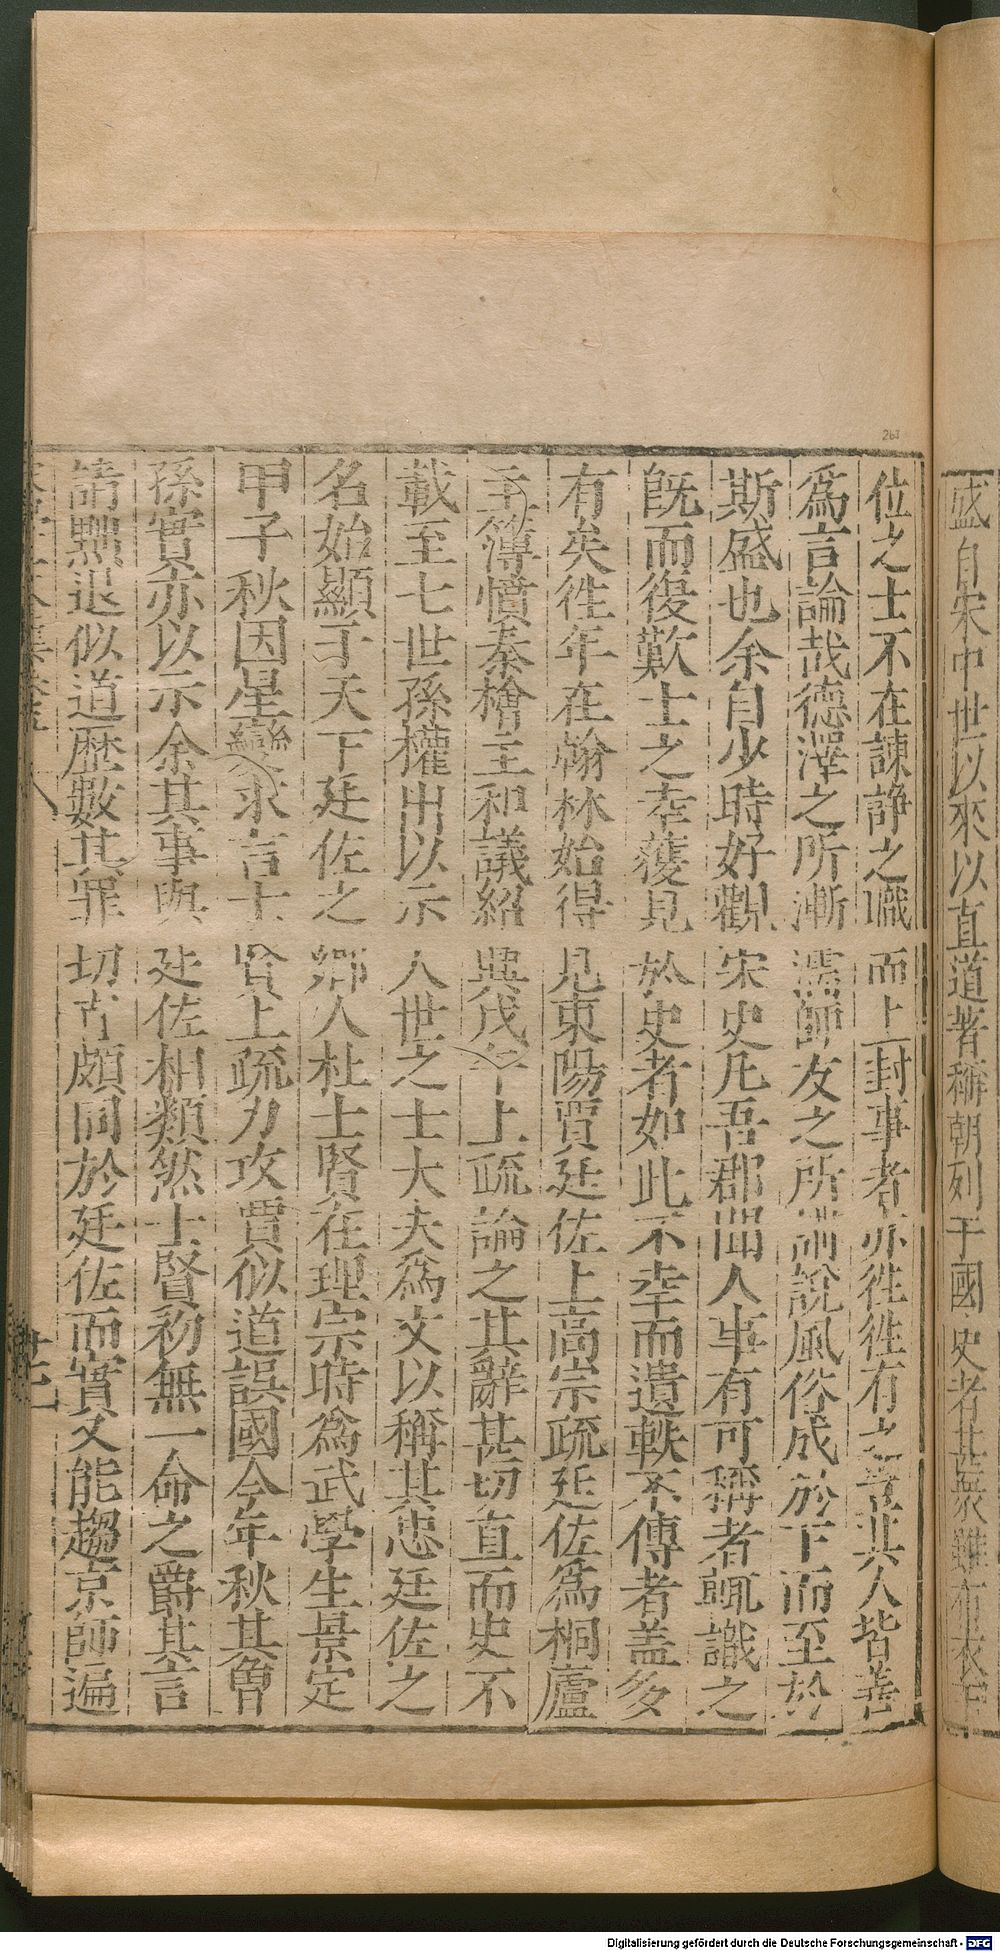 盛自宋中世以來以直道著稱朝列于國史者甚衆雖布衣
位之士不在諫諍之職而上封事者亦徃徃有之豈其人皆善
爲言論哉德澤之所漸濡師友之所講說風俗成於下而至於
斯盛也余自少時好觀宋史凡吾郡聞人事有可稱者輒識之
旣而復歎士之幸獲見於史者如此不幸而遺軼不傳者盖多
有矣徃年在翰林始得見東陽賈廷佐上高宗疏廷佐爲桐廬
主簿憤秦檜主和議紹興戊午上疏論之其辭甚切直而史不
載至七世孫權出以示人世之士大夫爲文以稱其忠廷佐之
名始顯于天下廷佐之鄉人杜士賢在理宗時爲武學生景定
甲子秋因星變求言士賢上疏力攻賈似道誤國今年秋其曾
孫實亦以示余其事與廷佐相類然士賢初無一命之爵其言
請黜退似道歷數其罪切直頗同於廷佐而實又能趨京師遍
263
Digitalisierung gefördert durch die Deutsche Forschungsgemeinschaft - DFG